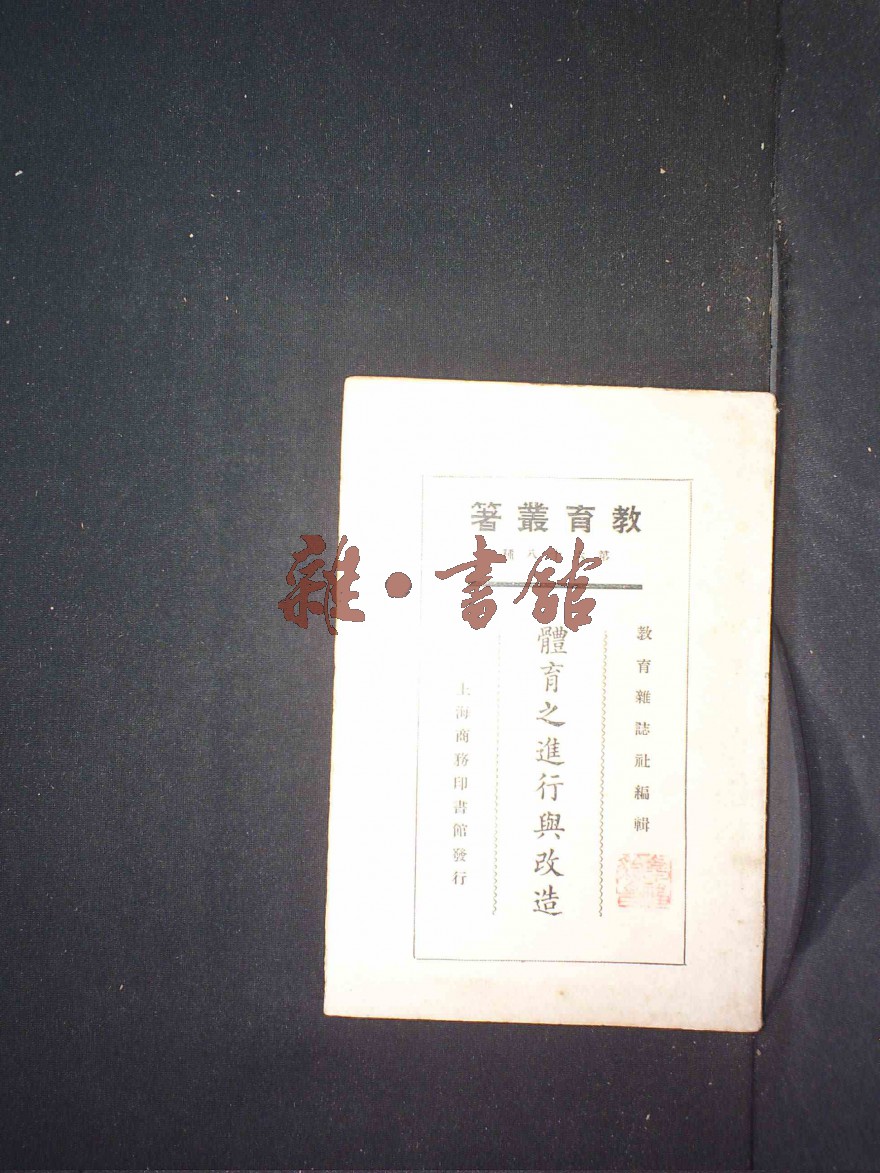 教育叢著
教育雜誌社編輯
體育之進行與改造
上海商務印書館發行
雜·書館